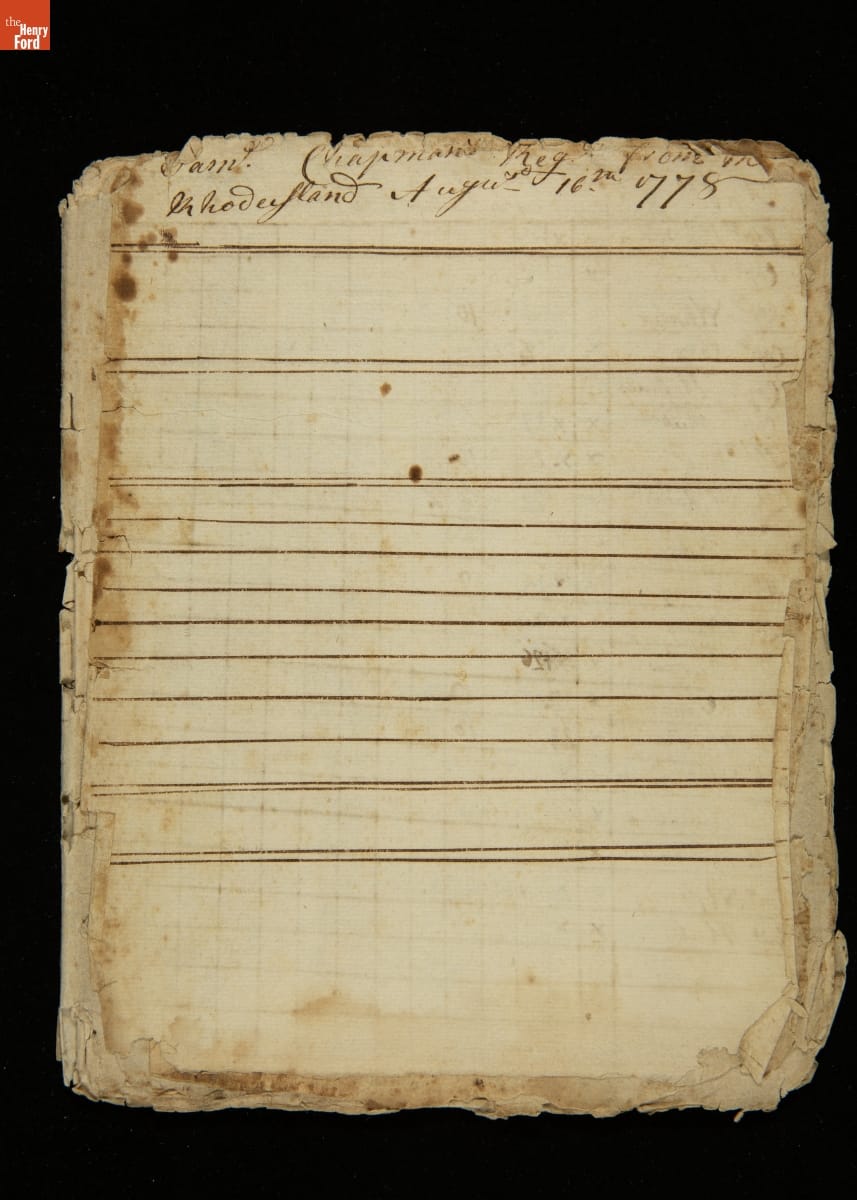 the
Henry
Ford
Sam.ˡ Chapman's Reg.ᵗ from
Rhodeisland August 16.ᵗʰ 1778